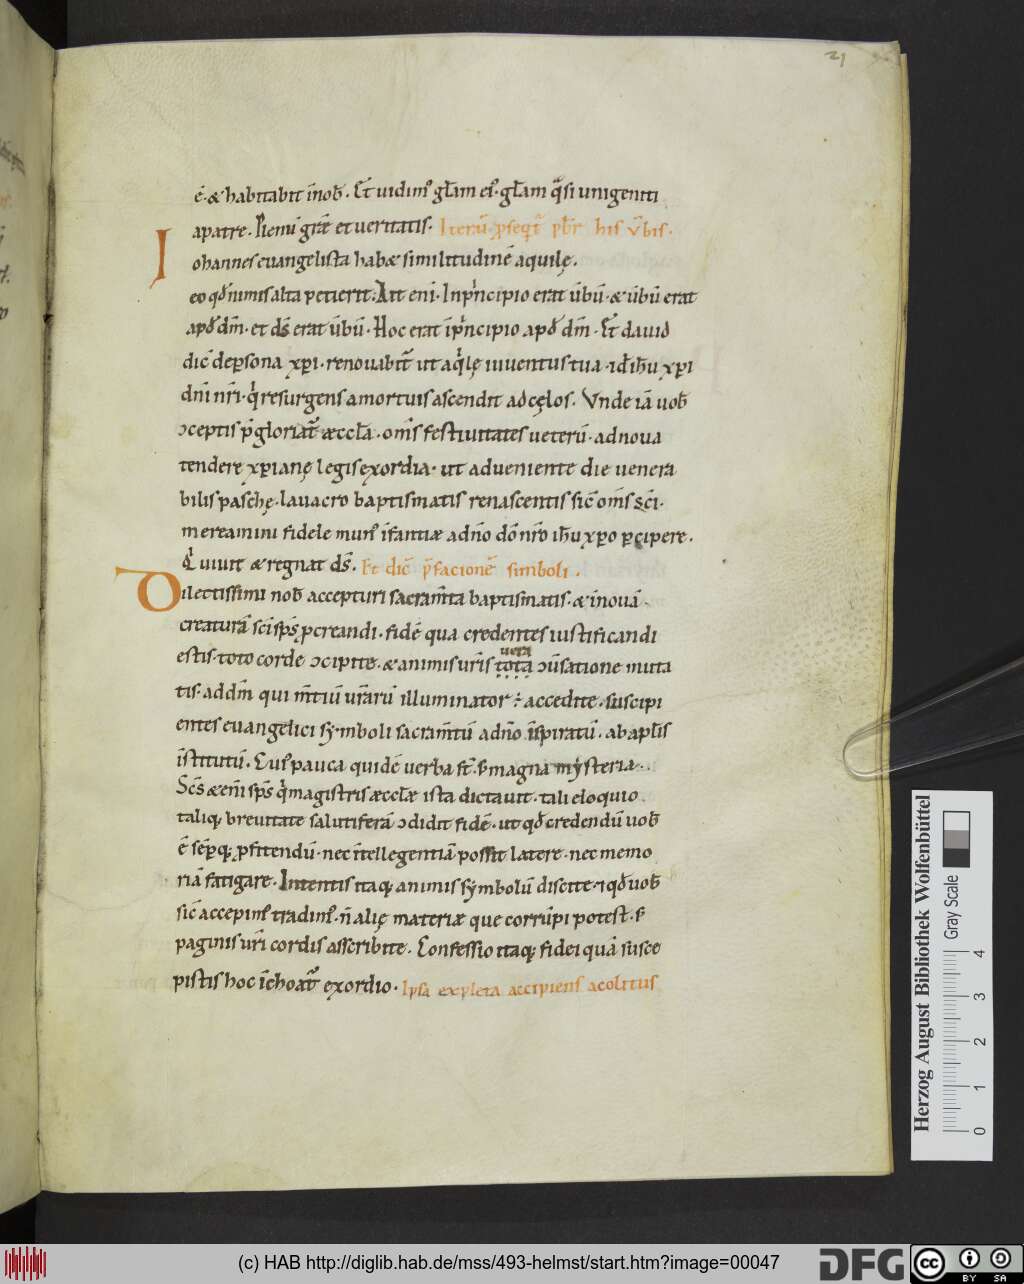 21
ē· & habitabit īnob̄· Et̄ uidim᾽ gl̄am ei᾽· gl̄am q̄si unigeniti
apatre· Plenū gr̄æ et ueritatis· Iterū p̱seqt̄ pb̄r his v̄bis·
Iohannes euangelista hab& similitudinē aquilę·
eo qd̄ nimis alta petierit· Ait eni· Inp̄ncipio erat ūbū· & ūbū erat
apd̄ dm̄· et ds̄ erat ūbū· Hoc erat īp̄ncipio apd̄ dm̄· Et̄ dauid
dic̄ dep̱sona xp̄i· renouabit̄ ut aq̄lę iuuentus tua· id̄ ih̄u xp̄i
dn̄i nr̄i· q̄ resurgens amortuis ascendit adcęlos· Vnde iā uob̄
ɔceptis p̄ gloriat̄ æccl̄a· om̄s festiuitates ueterū· adnoua
tendere xp̄ianę legis exordia· ut adueniente die uenera
bilis paschę· lauacro baptismatis renascentis sic̄ om̄s sc̄i·
mereamini fidele mun᾽ īfantiæ adn̄o dō nr̄o ih̄u xp̄o p̱cipere·
Q̄ uiuit & regnat ds̄· Et dic̄ p̄facionē simboli·
Dilectissimi nob̄ accepturi sacram̄ta baptismatis· & īnouā
creaturā sc̄i sp̄s p̱creandi· fidē qua credentes iustificandi
estis· toto corde ɔcipite· & animis ur̄is tota ɔūsatione muta
uera
tis· addm̄ qui m̄tiū ur̄arū illuminator ē accedite· suscipi
entes euangelici symboli sacram̄tū adn̄o īspiratū· abapl̄is
īstitutū· Cui᾽ pauca quidē uerba st̄· s̄ magna mysteria·
Sc̄s & eni sp̄s q̄ magistris æccl̄æ ista dictauit· tali eloquio
taliq; breuitate salutiferā ɔdidit fidē· ut qd̄ credendū uob̄
ē sēp̱q; p̱fitendū· nec īntellegentiā possit latere· nec memo
riā fatigare· Intentis itaq; animis symbolū discite· & qd̄ uob̄
sic̄ accepim᾽ tradim᾽· n̄ alię materiæ que corrūpi potest· s̄
paginis ur̄i cordis asscribite· Confessio itaq; fidei quā susce
pistis hoc īchoat̄ exordio· Ipsa expleta accipiens acolitus
Herzog August Bibliothek Wolfenbüttel
Gray Scale
0 1 2 3 4
(c) HAB http://diglib.hab.de/mss/493-helmst/start.htm?image=00047
DFG
cc BY SA